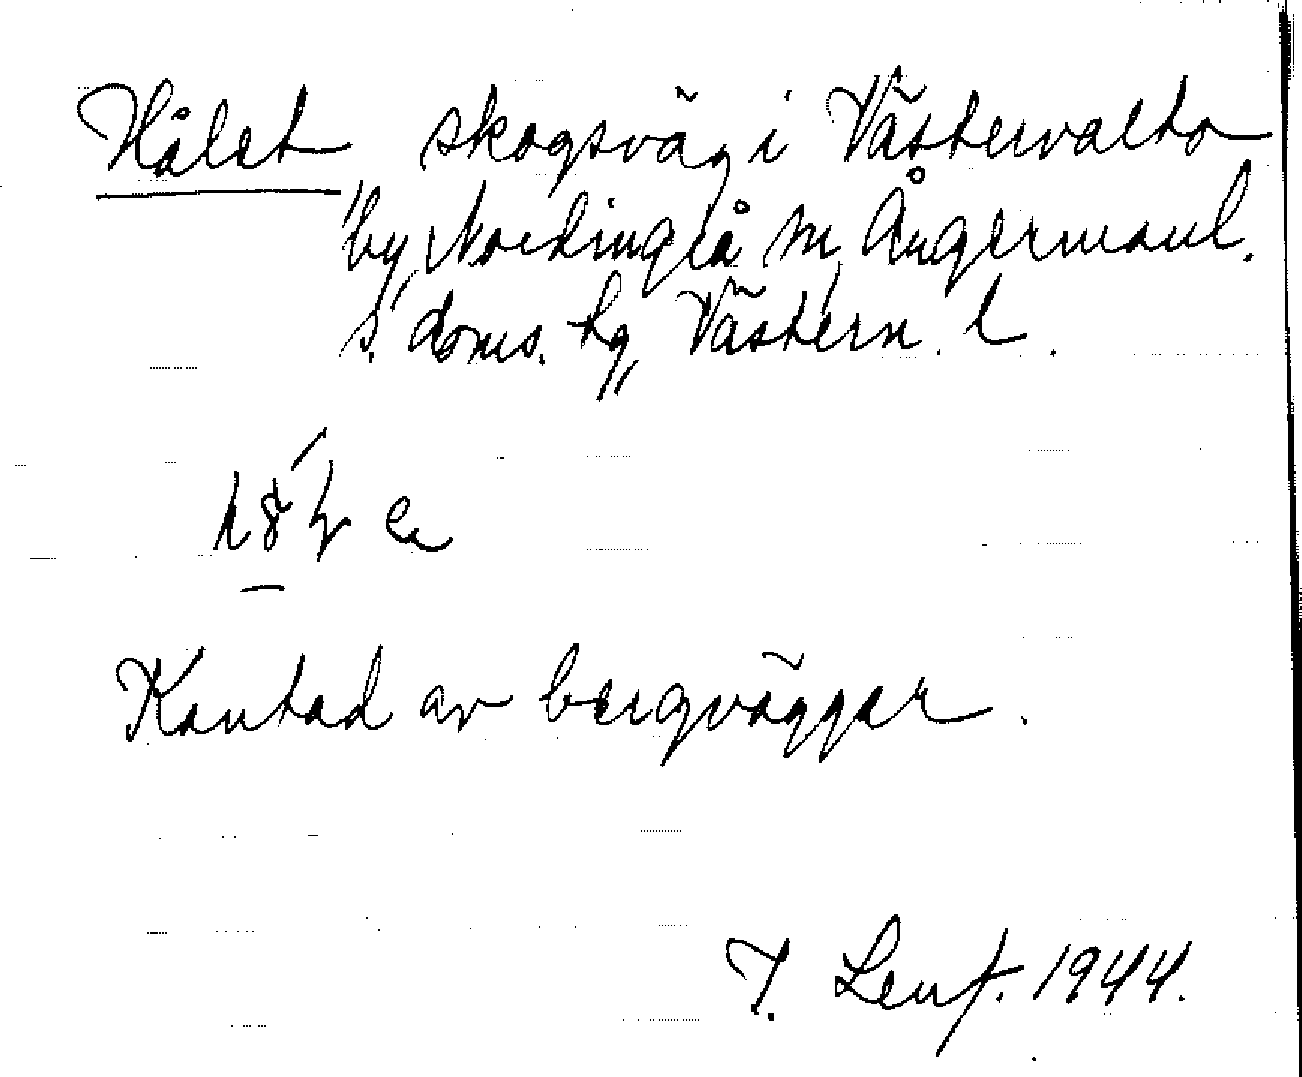 Hålet skogsväg i Västervalto
by, Nordingrå sn, Ångermanl.
s. doms. hg, Västern. l.
Kantad av bergväggar.
J. Lenf. 1944.